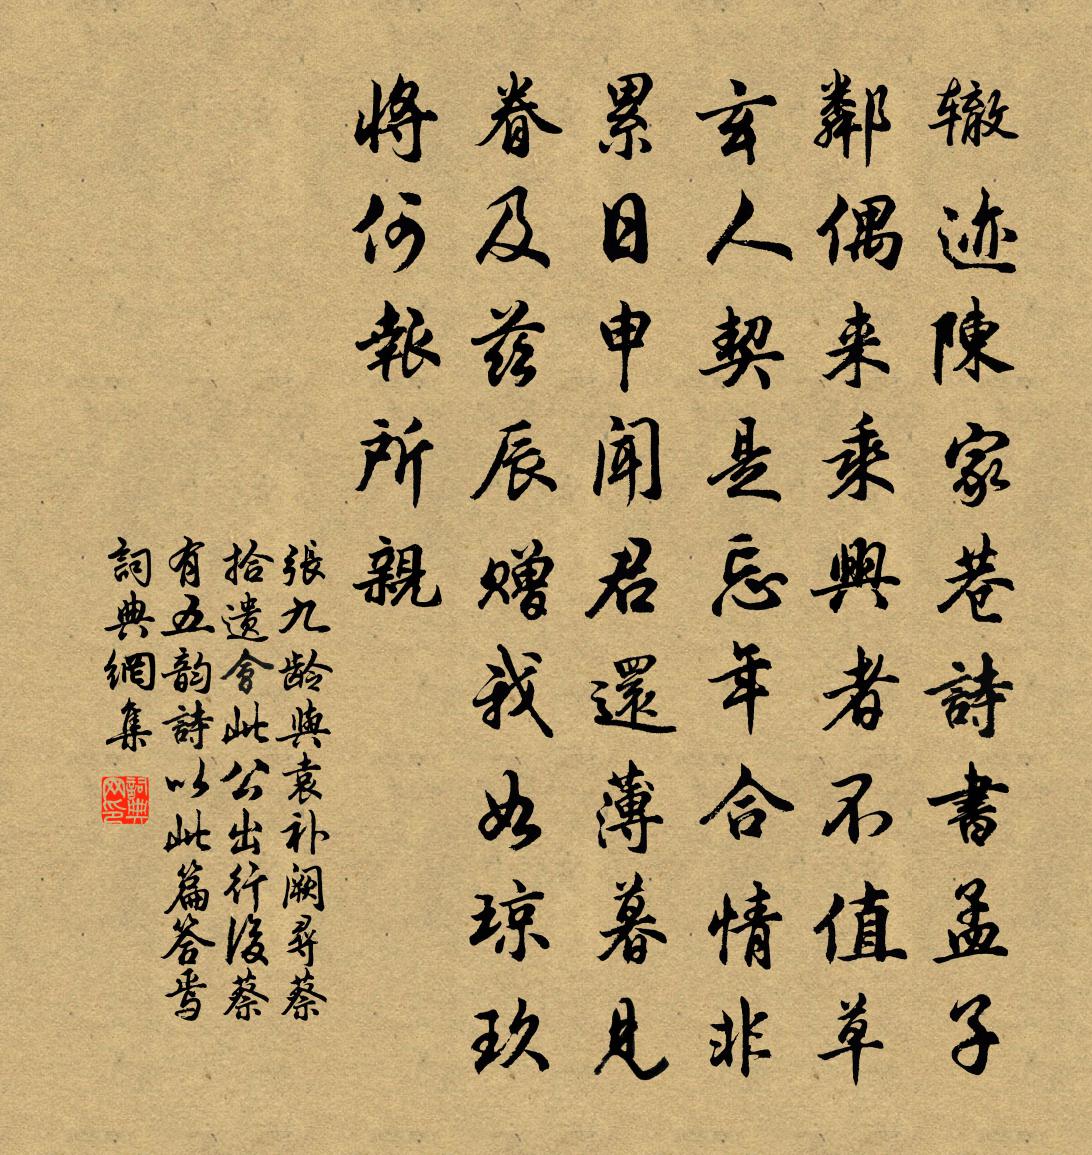 辙迹陳家巷詩書孟子
鄰偶来乘興者不值草
玄人契是忘年合情非
累日申聞君還薄暮見
眷及茲辰贈我如琼玖
將何報所親
張九龄與袁补阙尋蔡
拾遗會此公出行後蔡
有五韵詩以此篇答焉
詞典網集
詞典网印